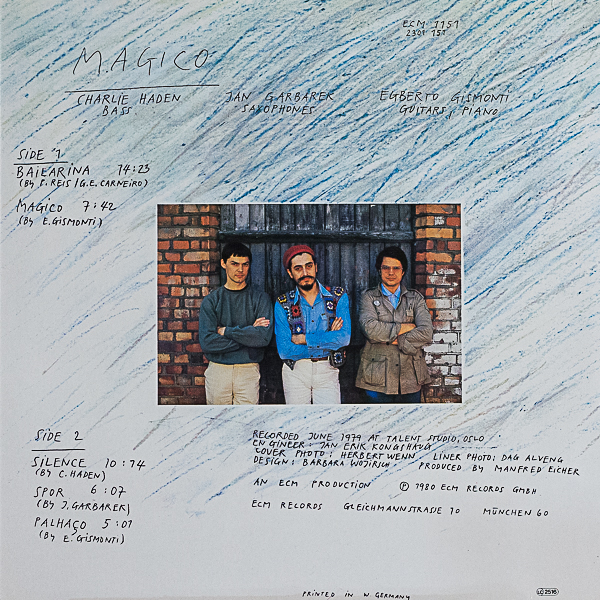 ECM 1151
2301 151
MAGICO
CHARLIE HADEN
BASS
JAN GARBAREK
SAXOPHONES
EGBERTO GISMONTI
GUITARS, PIANO
SIDE 1
BAILARINA 14:23
(BY P. REIS / G.E. CARNEIRO)
MAGICO 7:42
(BY E. GISMONTI)
SIDE 2
SILENCE 10:14
(BY C. HADEN)
SPOR 6:07
(BY J. GARBAREK)
PALHAÇO 5:01
(BY E. GISMONTI)
RECORDED JUNE 1979 AT TALENT STUDIO, OSLO
ENGINEER: JAN ERIK KONGSHAUG
COVER PHOTO: HERBERT WENN, LINER PHOTO: DAG ALVENG
DESIGN: BARBARA WOJIRSCH PRODUCED BY MANFRED EICHER
AN ECM PRODUCTION ℗ 1980 ECM RECORDS GMBH
ECM RECORDS GLEICHMANNSTRASSE 10 MÜNCHEN 60
PRINTED IN W. GERMANY
LC 2516